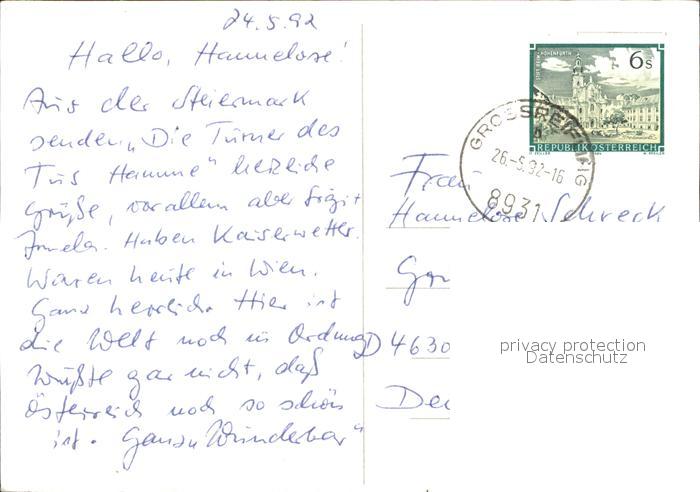 24.5.92
Hallo, Hannelose!
Aus der Steiermark
senden „Die Turner des
Tus Hamme" herzliche
Grüße, vor allem aber
Haben Kaiserwetter.
Waren heute in Wien.
Ganz herrlich. Hier ist
die Welt noch in Ordnung
Wußte gar nicht, daß
Österreich noch so schön
ist. Ganz „Wunderbar"
6s
STIFT REIN-HOHENFURTH
REPUBLIK ÖSTERREICH
26.-5.92-16
8931
Frau
Hannelose Schreck
D 4630
privacy protection
Datenschutz